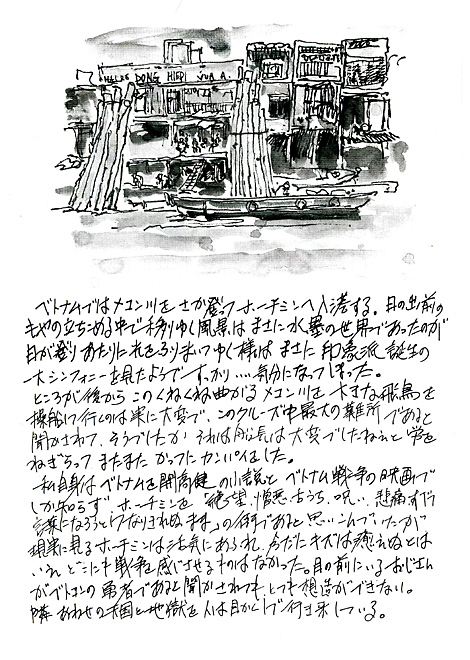 DONG HIEP
ベトナムではメコン川をさか登ってホーチミンへ入港する。日の出前の
もやの立ちこめる中で移りゆく風景はまさに水墨の世界であったのが
日が登りあたりに光をふりまいてゆく様はまさに印象派誕生の
大シンフォニーを見たようですっかり……気分になってしまった。
ところが後からこのくねくね曲がるメコン川を大きな飛鳥を
操船して行くのは実に大変で、このクルーズ中最大の難所であると
聞かされて、そうでしたか それは船長は大変でしたねえと労を
ねぎらってまたまたかってにカンパイをした。
私自身はベトナムを開高健の小説とベトナム戦争の映画で
しか知らず ホーチミンを「絶望、憎悪、呪い、悲痛
言葉になろうとしてなりきれぬ」の街であると思いこんでいたが
現実に見るホーチミンは活気にあふれ、今だにキズは癒えぬとは
いえ どこにも戦争を感じさせるものはなかった。目の前にいるおじさん
がベトコンの勇者であると聞かされても、とても想造ができない。
隣あわせの天国と地獄を人は目かくしで行き来している。